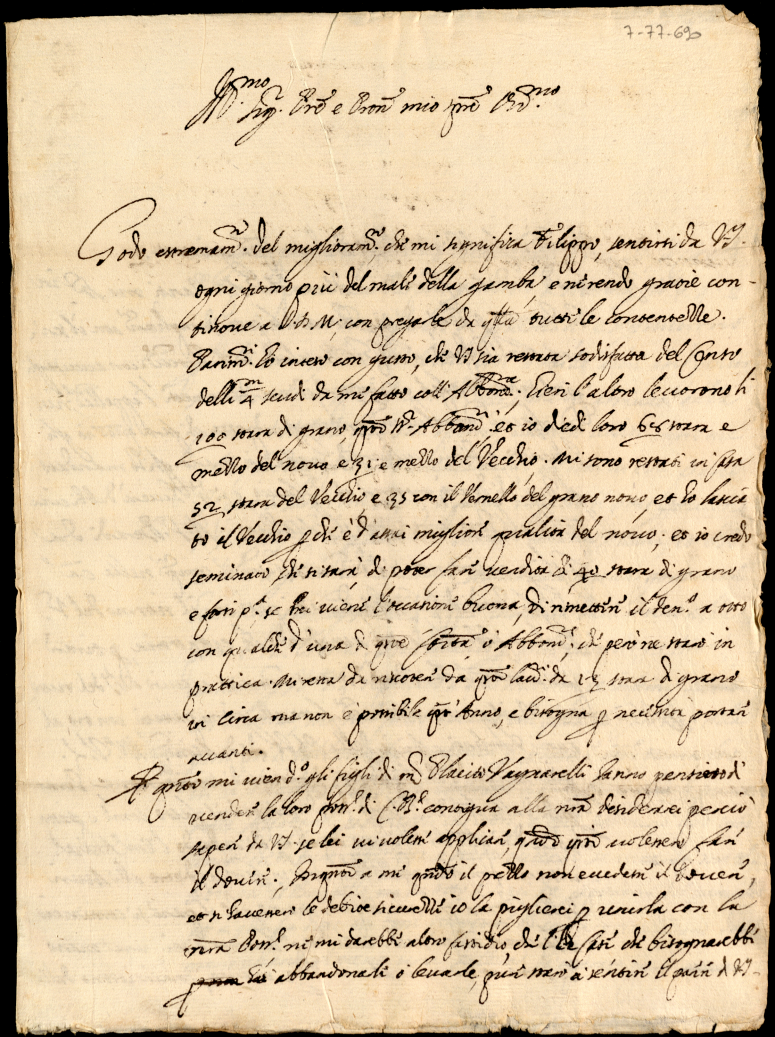 7-77-690
Ill.mo
Sig. Pre e Pron mio sre Oss.mo
Godo estremam.te del miglioram.to che mi significa Filippo, sentirsi da VS.
ogni giorno più del male della gamba, e ne rendo gratie con-
tinove a S.D.M, con pregarla da q.sta tutte le contentezze.
Parim.te Ho inteso con gusto, che VS sia restata sodisfatta del Conto
delli m/4 scudi da me fatto coll'Abbond.a; Hieri l'aloro levorono li
100 stara di grano, Abbond. et io diedi loro 68 stara e
mezzo del novo e 31 e mezzo del Vecchio. Mi sono restati in casa
52 stara del Vecchio e 35 con il del grano novo, et ho lascia
to il Vecchio p che è d'assai migliore qualità del novo, et io credo
seminato che si sarà di poter fare vendita di 40 stara di grano
e forsi p.a se lui viene l'occasione buona, di rimettere il den.o a otto
con qualche d'una di q.ste o Abbond.e, che però ne starò in
prattica. Mi resta da riscoter da q.sti da 12 stara di grano
in circa ma non è possibile q.sto Anno, e bisogna p necessità portar
avanti.
q.nto mi vien d.o gli figli di m. Placito Vagnarelli hanno pensiero di
vender la loro poss.e di contigua alla n.ra desiderarei perciò
saper da VS. se lei vi volesse applicare, q.ndo q.sti volessero fare
il dovere. In q.nto a me q.ndo il pezzo non eccedesse il dovere,
et si havessero le debite sicurezze io la piglierei p unirla con la
n.ra Poss.e ne mi darebbe altro fastidio che le case che bisognarebbe
abbandonarli o levarle, pure starò a sentire il parere di VS.